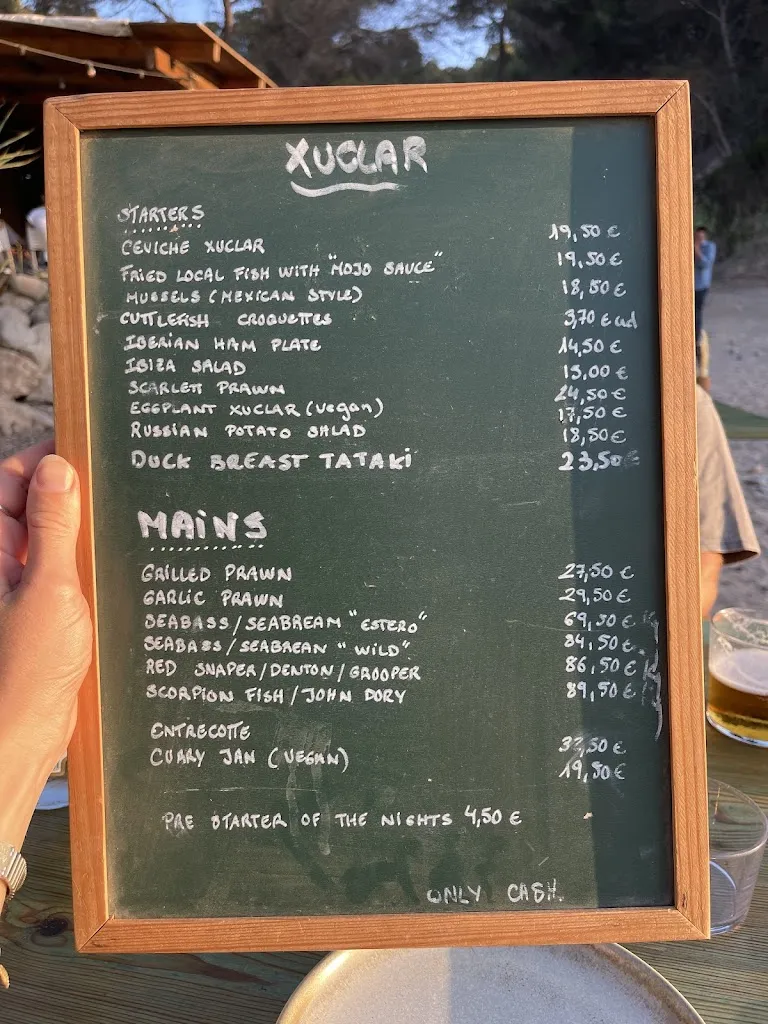 XUCLAR
STARTERS
CEVICHE XUCLAR 19,50 €
FRIED LOCAL FISH WITH "MOJO SAUCE" 19,50 €
MUSSELS (MEXICAN STYLE) 18,50 €
CUTTLEFISH CROQUETTES 3,70 € ud
IBERIAN HAM PLATE 14,50 €
IBIZA SALAD 15,00 €
SCARLETT PRAWN 24,50 €
EGGPLANT XUCLAR (vegan) 17,50 €
RUSSIAN POTATO SALAD 18,50 €
DUCK BREAST TATAKI 23,50€
MAINS
GRILLED PRAWN 27,50 €
GARLIC PRAWN 29,50 €
SEABASS/SEABREAM "ESTERO" 69,50 €
SEABASS/SEABREAN "WILD" 84,50 €
RED SNAPER/DENTON/GROOPER 86,50 €
SCORPION FISH/JOHN DORY 89,50 €
ENTRECOTTE 33,50 €
CURRY JAN (VEGAN) 19,50 €
PRE STARTER OF THE NIGHTS 4,50 €
ONLY CASH.